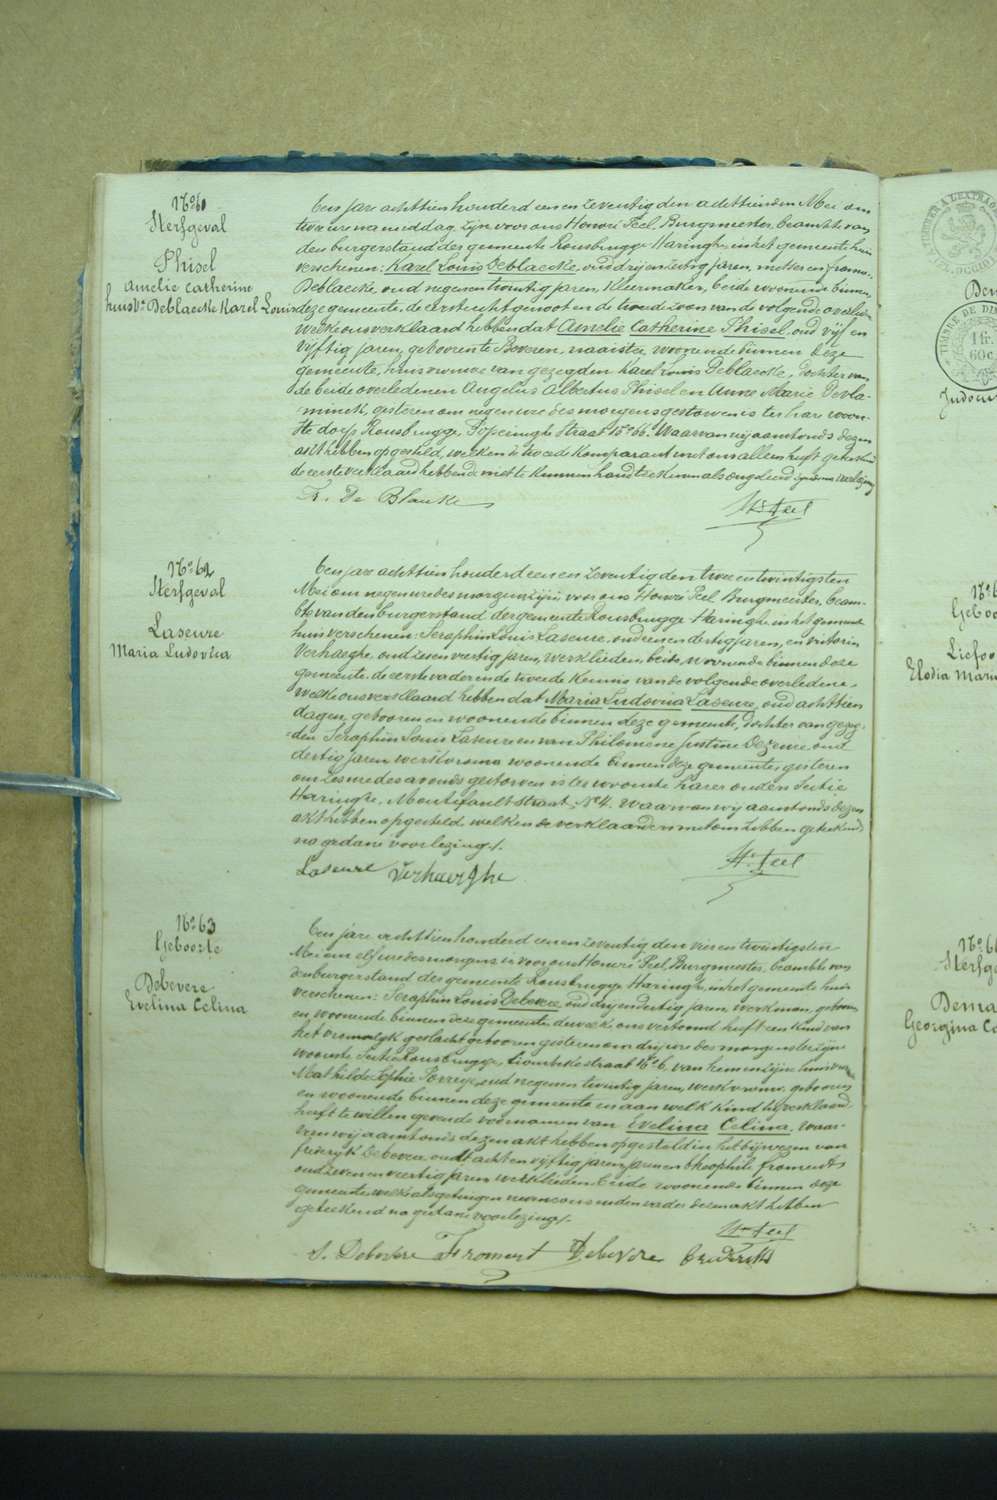 No 61
Sterfgeval
Phisel
Amelie Catherine
huisv. Deblaecke Karel Louis
Een jare achttien honderd een en zeventig den achttienden Mei om
twee ure namiddag, zijn voor ons Honoré Feel, Burgmeester, beambte van
den burgerstand der gemeente Rousbrugge Haringhe, in het gemeente huis
verschenen: Karel Louis Deblaecke, oud drij en zestig jaren, metser en
Deblaecke oud negen en twintig jaren, kleermaker, beide woonende binnen
deze gemeente, de eerste echtgenoot en de tweede zoon van de volgende overledene
welke ons verklaard hebben dat Amelie Catherine Phisel, oud vijf en
vijftig jaren, geboren te Beveren, naaister, woonende binnen deze
gemeente, huisvrouwe van gezegden Karel Louis Deblaecke, dochter van
de beide overledenen Angelus Albertus Phisel en Anne Marie Devla-
minck, gisteren om negen ure des morgens gestorven is ter hare woon-
ste dorp Rousbrugge, Poperinghe straat No 66. Waarvan wij aanstonds dezen
akt hebben opgesteld, welken de tweede komparant met ons alleen heeft geteekend
de eerste verklaard hebbende niet te kunnen handteekenen als ongeleerd zijnde na voorlezing
De Blaecke
H. Feel
No 62
Sterfgeval
Laseure
Maria Ludovica
Een jare achttien honderd een en zeventig den twee en twintigsten
Mei om negen ure des morgens zijn voor ons Honoré Feel Burgmeester, beam-
bte van den burgerstand der gemeente Rousbrugge Haringhe in het gemeente
huis verschenen: Seraphin Louis Laseure, oud een en dertig jaren, en
Verhaeghe, oud zeven en veertig jaren, werklieden, beide woonende binnen deze
gemeente, de eerste vader en de tweede kennis van de volgende overledene,
welke ons verklaard hebben dat Maria Ludovica Laseure, oud achttien
dagen, geboren en woonende binnen deze gemeente, dochter van gezeg-
den Seraphin Louis Laseure en van Philomene Justine Dezeure, oud
dertig jaren, werkvrouw woonende binnen deze gemeente, gisteren
om zes ure des avonds gestorven is ter woonste harer ouders Sectie
Haringhe, straat, No 4. Waarvan wij aanstonds dezen
akt hebben opgesteld, welken de verklaarders met ons hebben geteekend
na gedane voorlezing.
Laseure Verhaeghe
H. Feel
No 63
Geboorte
Debevere
Evelina Celina
Een jare achttien honderd een en zeventig den vier en twintigsten
Mei om elf ure des morgens is voor ons Honoré Feel, Burgmeester, beambte van
den burgerstand der gemeente Rousbrugge Haringhe, in het gemeente huis
verschenen: Seraphin Louis Debevere, oud drij en dertig jaren, werkman, geboren
en woonende binnen deze gemeente, dewelke ons vertoond heeft een kind van
het vrouwelijk geslacht geboren gisteren om drij ure des morgens te zijne
woonste Sectie Rousbrugge, straat No 6, van hem en zijne huisvrouw
Mathilde Sophie oud negen en twintig jaren, werkvrouw, geboren
en woonende binnen deze gemeente en aan welk kind hij verklaard
heeft te willen geven de voornamen van Evelina Celina. Waar-
van wij aanstonds dezen akt hebben opgesteld in het bijwezen van
friderijk Debevere oud acht en vijftig jaren, en theophile froment
oud zeven en veertig jaren werklieden, beide woonende binnen deze
gemeente, welke als getuigen nevens ons en den vader dezen akt hebben
geteekend na gedane voorlezing.
H. Feel
S. Debevere Froment Debevere
TIMBRE DE
1 fr.
60 c.
Geboo
Elodia Maria
Sterfge
Georgina